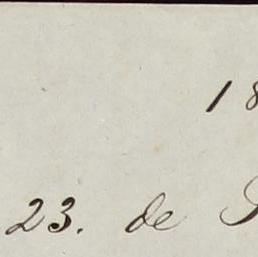 18
23. de